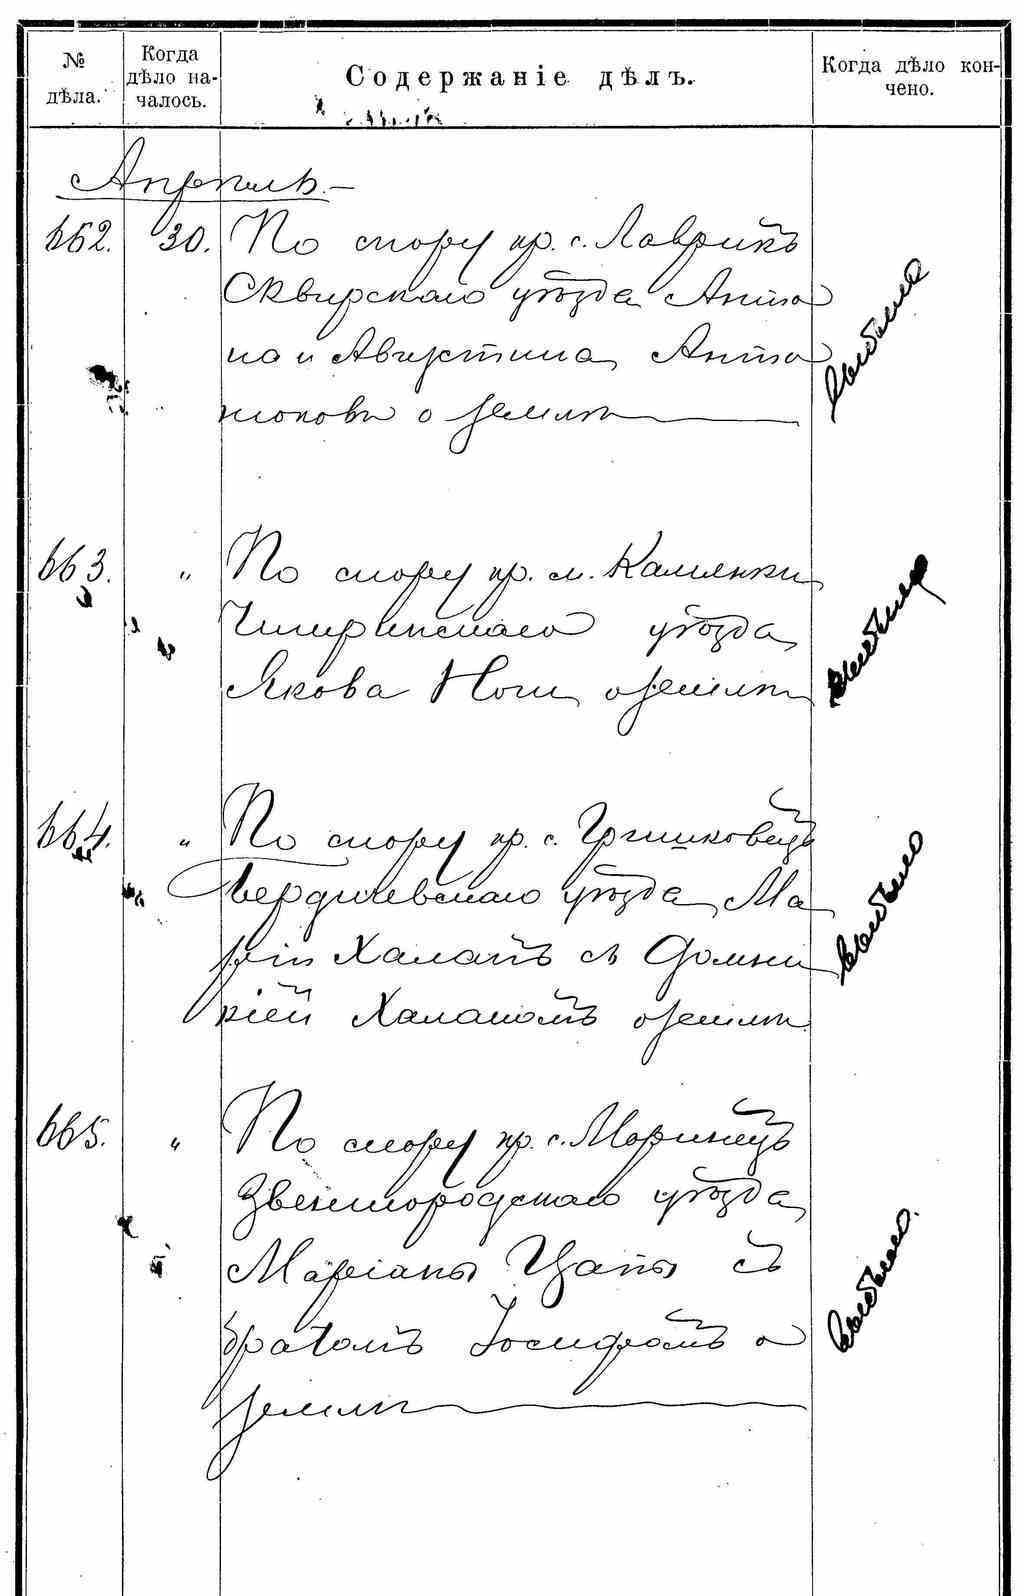 № дѣла.
Когда дѣло на-
чалось.
Содержаніе дѣлъ.
Когда дѣло кон-
чено.
Апрѣль.—
662. 30. По спору кр. с. Лаврикъ
Сквирскаго уѣзда Анто
на и Августина Анто
нюковъ о землѣ
выбыло
663. " По спору кр. м. Каменки
Чигиринскаго уѣзда
Якова Ноги о землѣ
выбыло
664. " По спору кр. с. Гришковецъ
Бердичевскаго уѣзда Ма
ріи Халапъ съ Домни
кіей Халапомъ о землѣ
выбыло
665. " По спору кр. с. Моринецъ
Звенигородскаго уѣзда
Маріаны Цапы съ
братомъ Іосифомъ о
землѣ
выбыло.